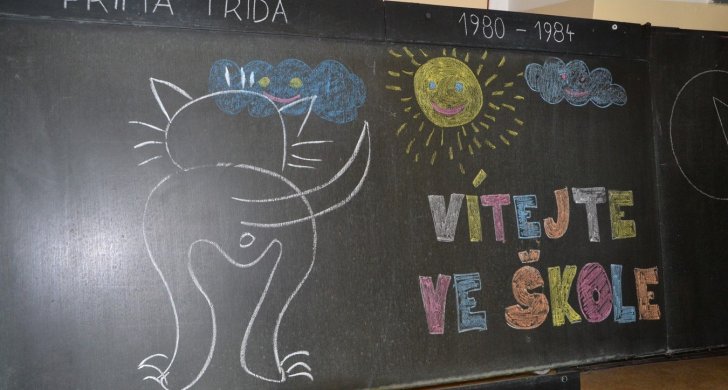 PRIMA TŘÍDA
1980 - 1984
VÍTEJTE
VE ŠKOLE